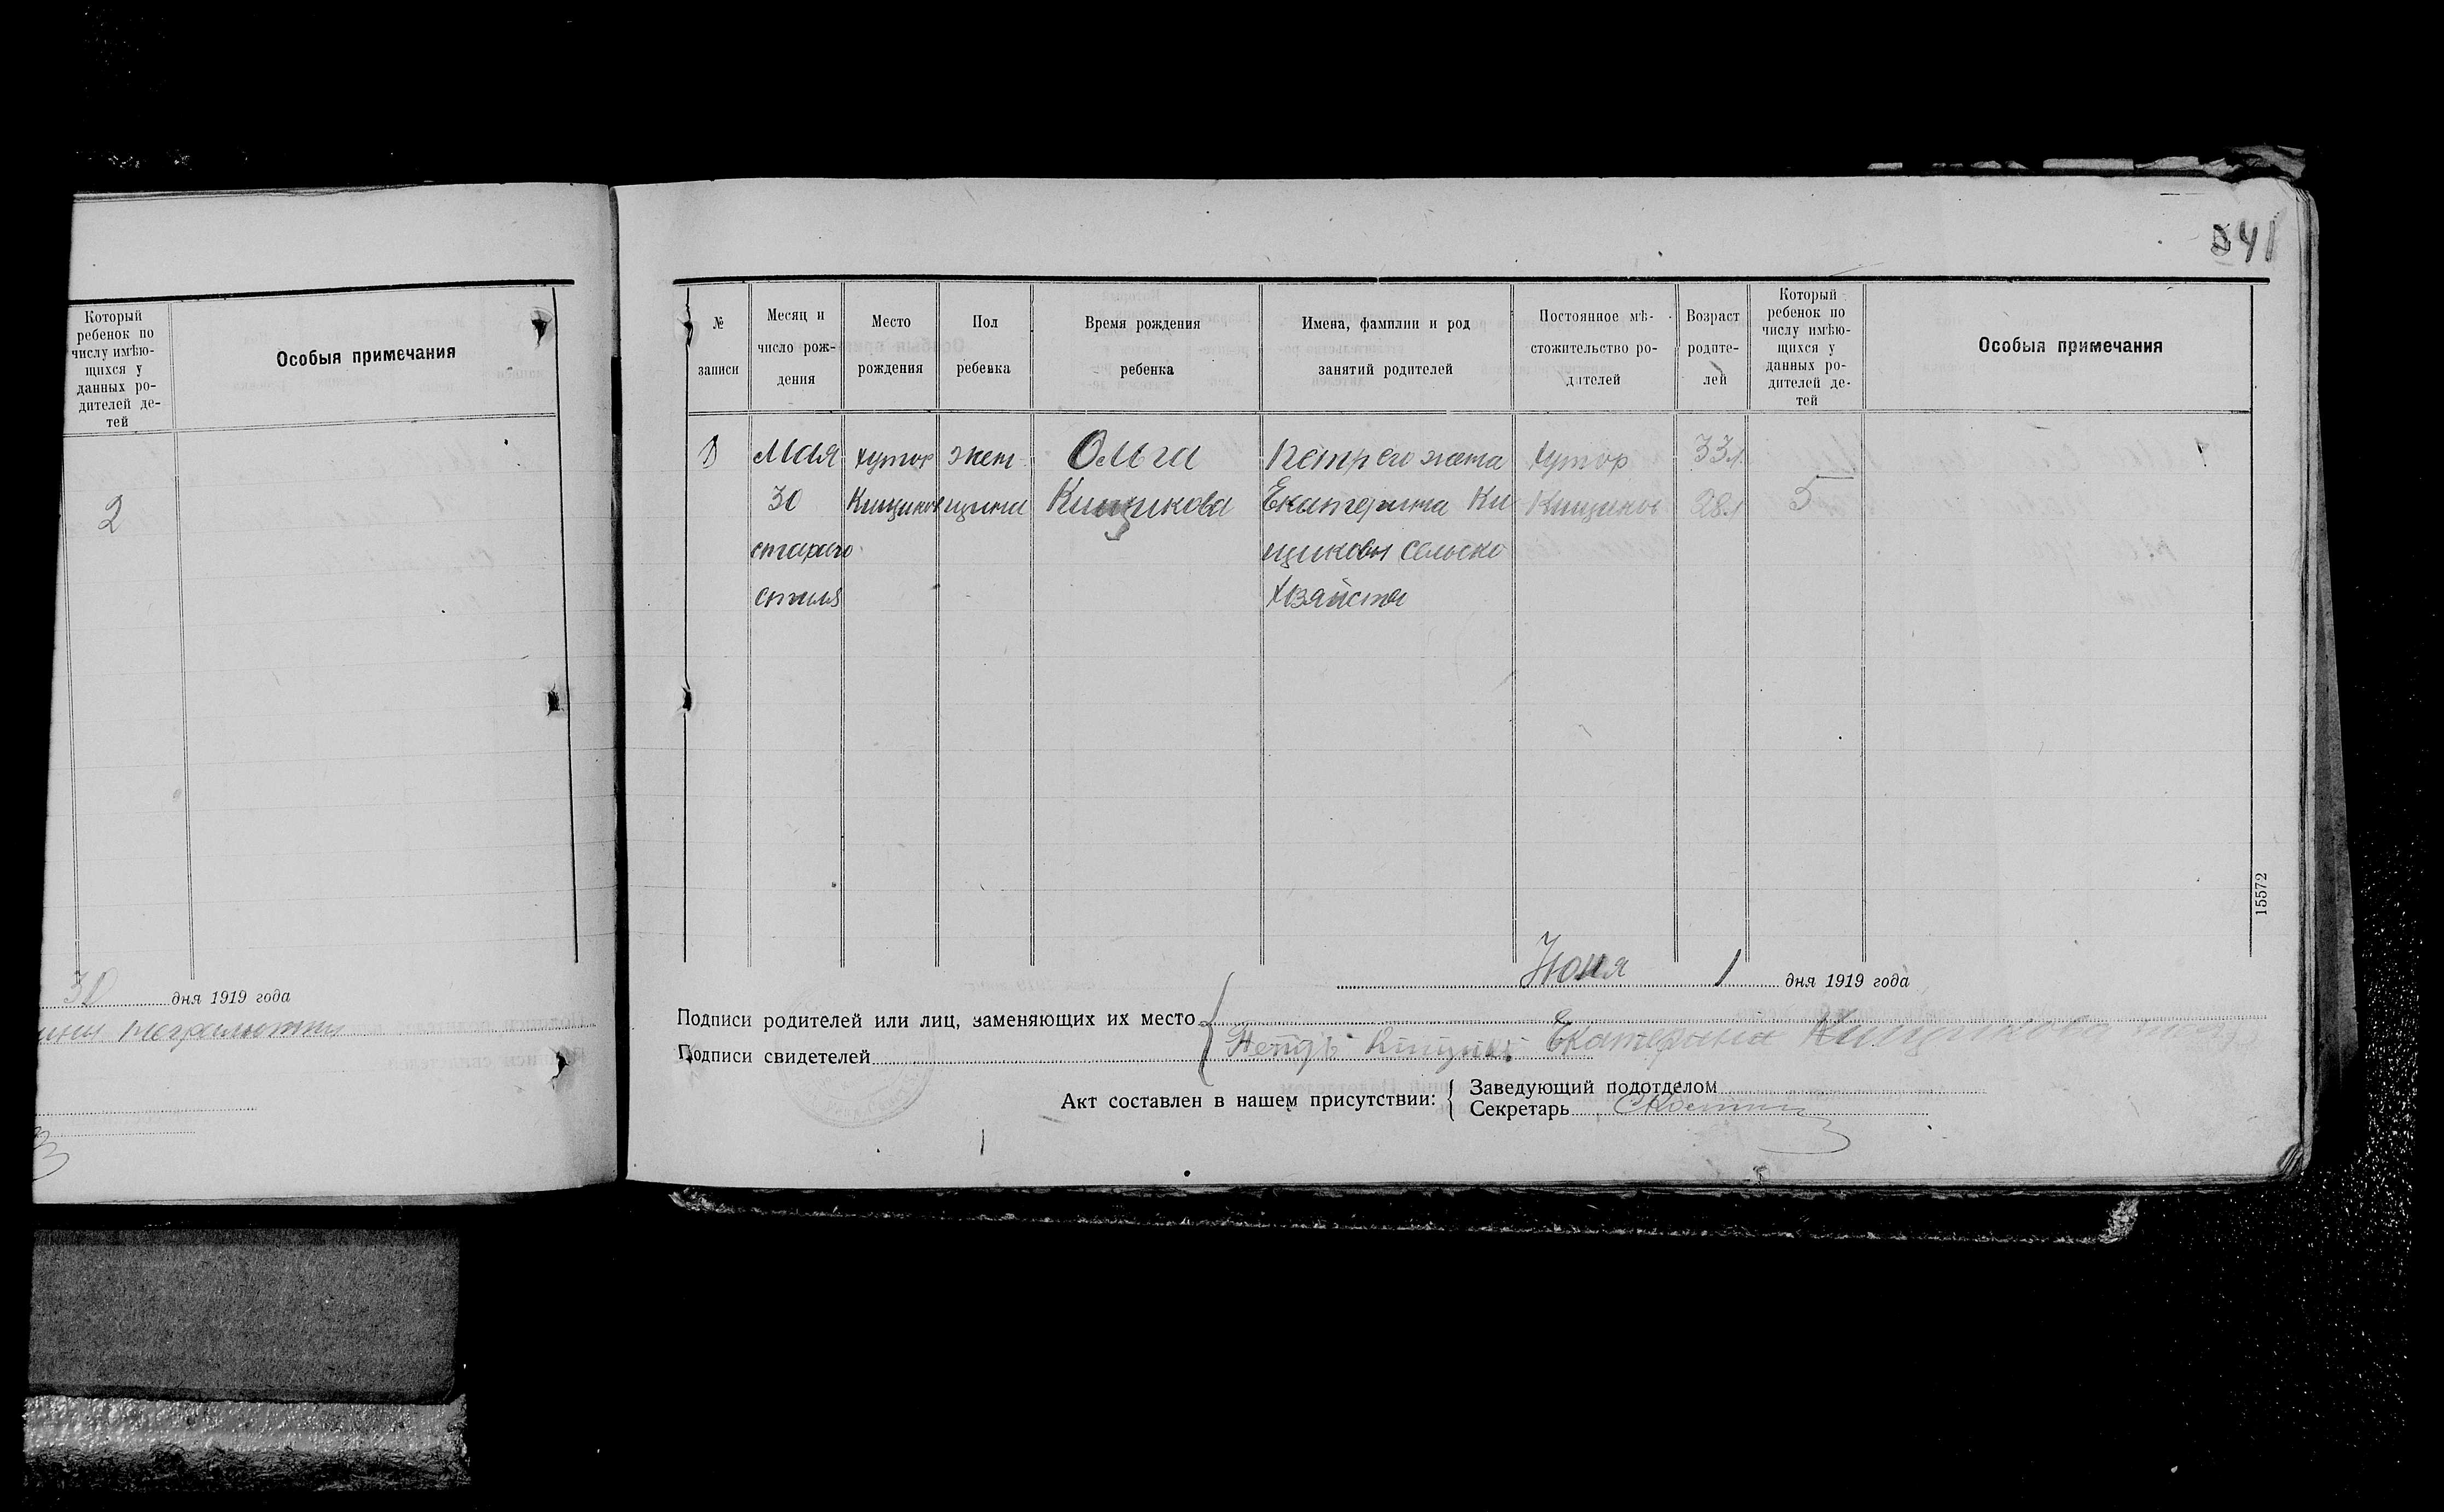 341
Который
ребенок по
числу имѣю-
щихся у
данных ро-
дителей де-
тей
Особыя примечания
2
30 дня 1919 года
№
записи
Месяц и
число рож-
дения
Место
рождения
Пол
ребенка
Время рождения
ребенка
Имена, фамплии и род
занятий родителей
Постоянное мѣ-
стожительство ро-
дителей
Возраст
родите-
лей
Который
ребенок по
числу имѣю-
щихся у
данных ро-
дителей де-
тей
Особыя примечания
Мая
30
старого
стиля
хутор
Кищиков
жен
щина
Ольга
Кищикова
Петр его жета
Екатерина Ки
щиковы сельско
хозяйство
хутор
Кищиков
33 л
28 л
5
15572
Июня 1 дня 1919 года
Подписи родителей или лиц, заменяющих их место
Петръ Кищиков Екатерина Кищикова
Подписи свидетелей
Акт составлен в нашем присутствии:
Заведующий подотделом
Секретарь